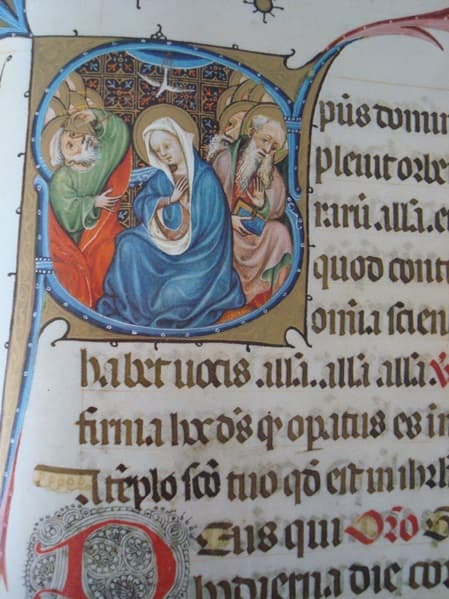 pūs domin
pleuit orbe
rarū .allā. e
quod cont
omīa scien
habet uocis .allā. allā allā. V
firma hoc dꝰs qꝫ opatus es in
A tēplo scō tuo qd̄ est in ihrl
Deus qui Oro
hodierna die cor